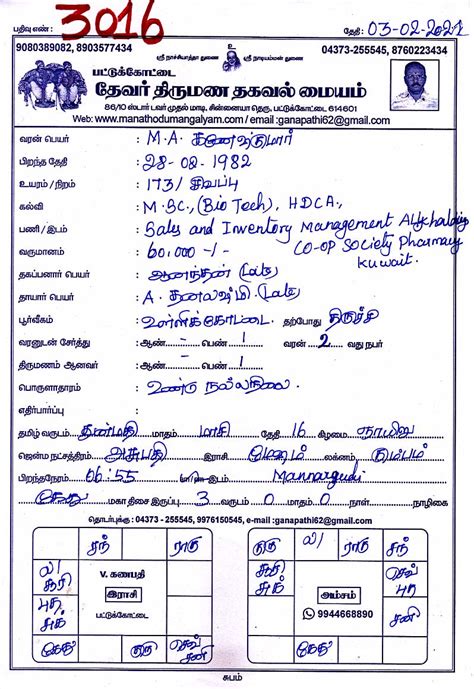 பதிவு எண் : 3016 தேதி : 03-02-2021
ஸ்ரீ நாச்சியாத்தா துணை உ ஸ்ரீ நாடியம்மன் துணை
9080389082, 8903577434 04373-255545, 8760223434
பட்டுக்கோட்டை
தேவர் திருமண தகவல் மையம்
86/10 ஸ்டார் டவர் முதல் மாடி, சின்னையா தெரு, பட்டுக்கோட்டை 614601
Web: www.manathodumangalyam.com / email :ganapathi62@gmail.com
வரன் பெயர் : M.A. கணேஷ்குமார்
பிறந்த தேதி : 28-02-1982
உயரம் / நிறம் : 173/ சிவப்பு
கல்வி : M.SC., (Bio Tech), HDCA.,
பணி / இடம் : Sales and Inventory Management
CO-OP Society Pharmacy
Kuwait.
வருமானம் : 60,000 -/-
தகப்பனார் பெயர் : ஆனந்தன் (Late)
தாயார் பெயர் : A. தனலஷ்மி (Late)
பூர்வீகம் : உள்ளிக்கோட்டை. தற்போது திருச்சி
வரனுடன் சேர்த்து : ஆண் - பெண் 1 வரன் 2 வது நபர்
திருமணம் ஆனவர் : ஆண் - பெண் 1
பொருளாதாரம் : உண்டு நல்லநிலை.
எதிர்பார்ப்பு :
தமிழ் வருடம் துன்மதி மாதம் மாசி தேதி 16 கிழமை ஞாயிறு
ஜென்ம நட்சத்திரம் அசுபதி இராசி மேஷம் லக்னம் கும்பம்
பிறந்தநேரம் 06:55 இடம் Mannargudi
கேது மகா திசை இருப்பு 3 வருடம் 0 மாதம் 0 நாள் நாழிகை
தொடர்புக்கு : 04373 - 255545, 9976150545, e-mail :ganapathi62@gmail.com
சந் ராகு குரு ல/ ராகு சந்
ல/ சூரி V. கணபதி சூரி செவ்
புத இராசி சுக் அம்சம் புத
சுக் பட்டுக்கோட்டை 9944668890
கேது குரு செவ் சனி கேது சனி
சுபம்